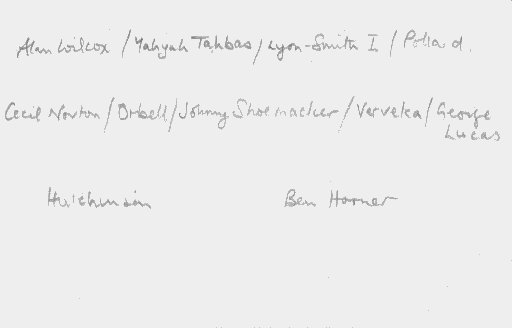 Alan Wilcox / Yahyah Tahbas / Lyon-Smith I / Pollard.
Cecil Norton / Orbell / Johnny Shoemacker / Verveka / George
Lucas
Hutchinson Ben Horner